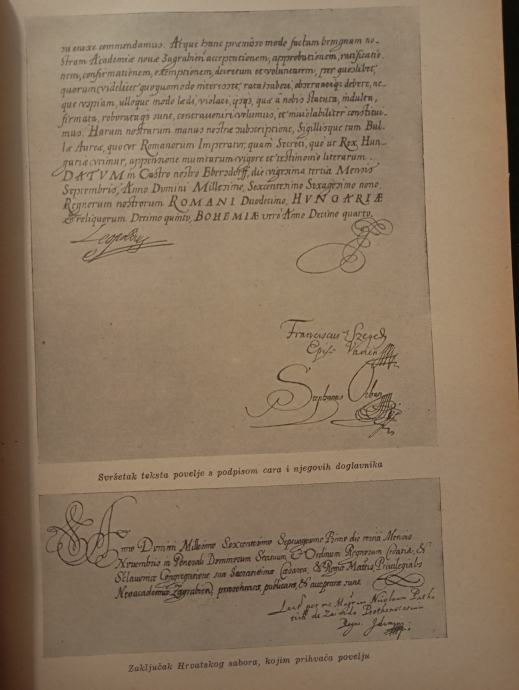 ni enixe commendamus. Atque hanc præmisso modo factam benignam no-
stram Academiæ novæ Zagrabiensi acceptationem, approbationem, ratificatio-
nem, confirmationem, exemptionem, decretum et voluntatem, per quoslibet,
quorum videlicet quoquomodo interesset, rata haberi, observarique debere, ne-
que usquam, ulloque modo lædi, violari, ijsq, quæ à nobis statuta, indulta,
firmata, roborataque sunt, contraveniri volumus, et inviolabiliter constitui-
mus. Harum nostrarum manus nostræ subscriptione, Sigillisque tum Bul-
la Aurea, quo ut Romanorum Imperator, quam Secreti, quo ut Rex Hun-
gariæ utimur, appensione munitarum vigore et testimonio literarum.
DATVM in Castro nostro Eberstorff, die vigesima tertia Mensis
Septembris, Anno Domini Millesimo, Sexcentesimo Sexagesimo nono,
Regnorum nostrorum ROMANI Duodecimo, HVNGARIÆ
& reliquorum Decimo quinto, BOHEMIÆ verò Anno Decimo quarto.
Leopoldus
Franciscus Szegedi
Epis
Stephanus Orban
Svršetak teksta povelje s podpisom cara i njegovih doglavnika
Anno Domini Millesimo Sexcentesimo Septuagesimo Primo die Mensis
Novembris in Generali Dominorum Statuum & Ordinum Regnorum Croatiæ, &
Sclavoniæ Congregatione, Cæsareæ, & Regiæ Mattis Privilegiales
Neoacademiæ Zagrabien, præsentes, publicatæ, & acceptatæ sunt.
Lectæ per me Magrum Nicolaum Patha
tich de Zajezda Prothonotarium
Regni.
Zaključak Hrvatskog sabora, kojim prihvaća povelju